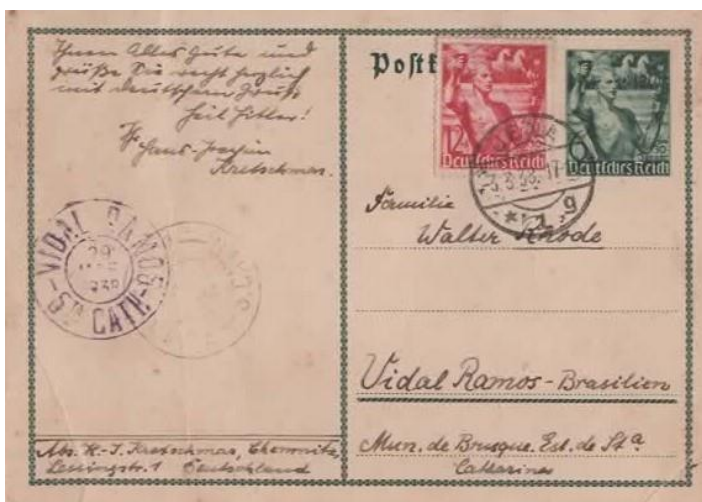 Ihnen Alles Gute und
grüße Sie recht herzlich
mit deutschem Gruß
Heil Hitler!
Ihr
Hans-Joachim
Kretschmar.
VIDAL RAMOS
29
938
STA CATH.
Abs. H.-J. Kretschmar, Chemnitz,
Lessingstr. 1 Deutschland
Postk
12
Deutsches Reich
6
Deutsches Reich
JENA
Familie
Walter Rhode
Vidal Ramos - Brasilien
Mun. de Brusque. Est. de Sta
Catharina